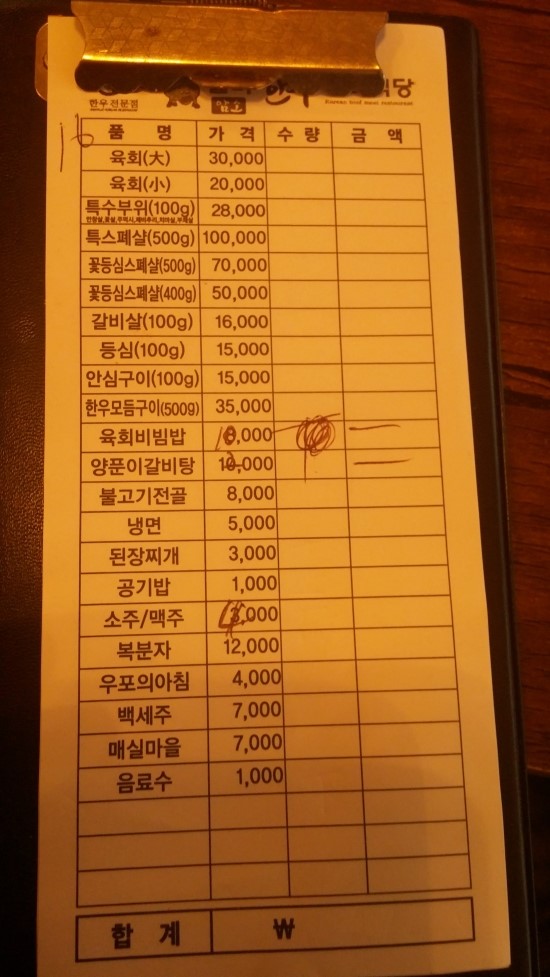 한우전문점
암소
식당
16
품 명 가 격 수 량 금 액
육회(大) 30,000
육회(小) 20,000
특수부위(100g) 28,000
특스페샬(500g) 100,000
꽃등심스페샬(500g) 70,000
꽃등심스페샬(400g) 50,000
갈비살(100g) 16,000
등심(100g) 15,000
안심구이(100g) 15,000
한우모듬구이(500g) 35,000
육회비빔밥 10,000
양푼이갈비탕
불고기전골 8,000
냉면 5,000
된장찌개 3,000
공기밥 1,000
소주/맥주 4,000
복분자 12,000
우포의아침 4,000
백세주 7,000
매실마을 7,000
음료수 1,000
합 계 ₩